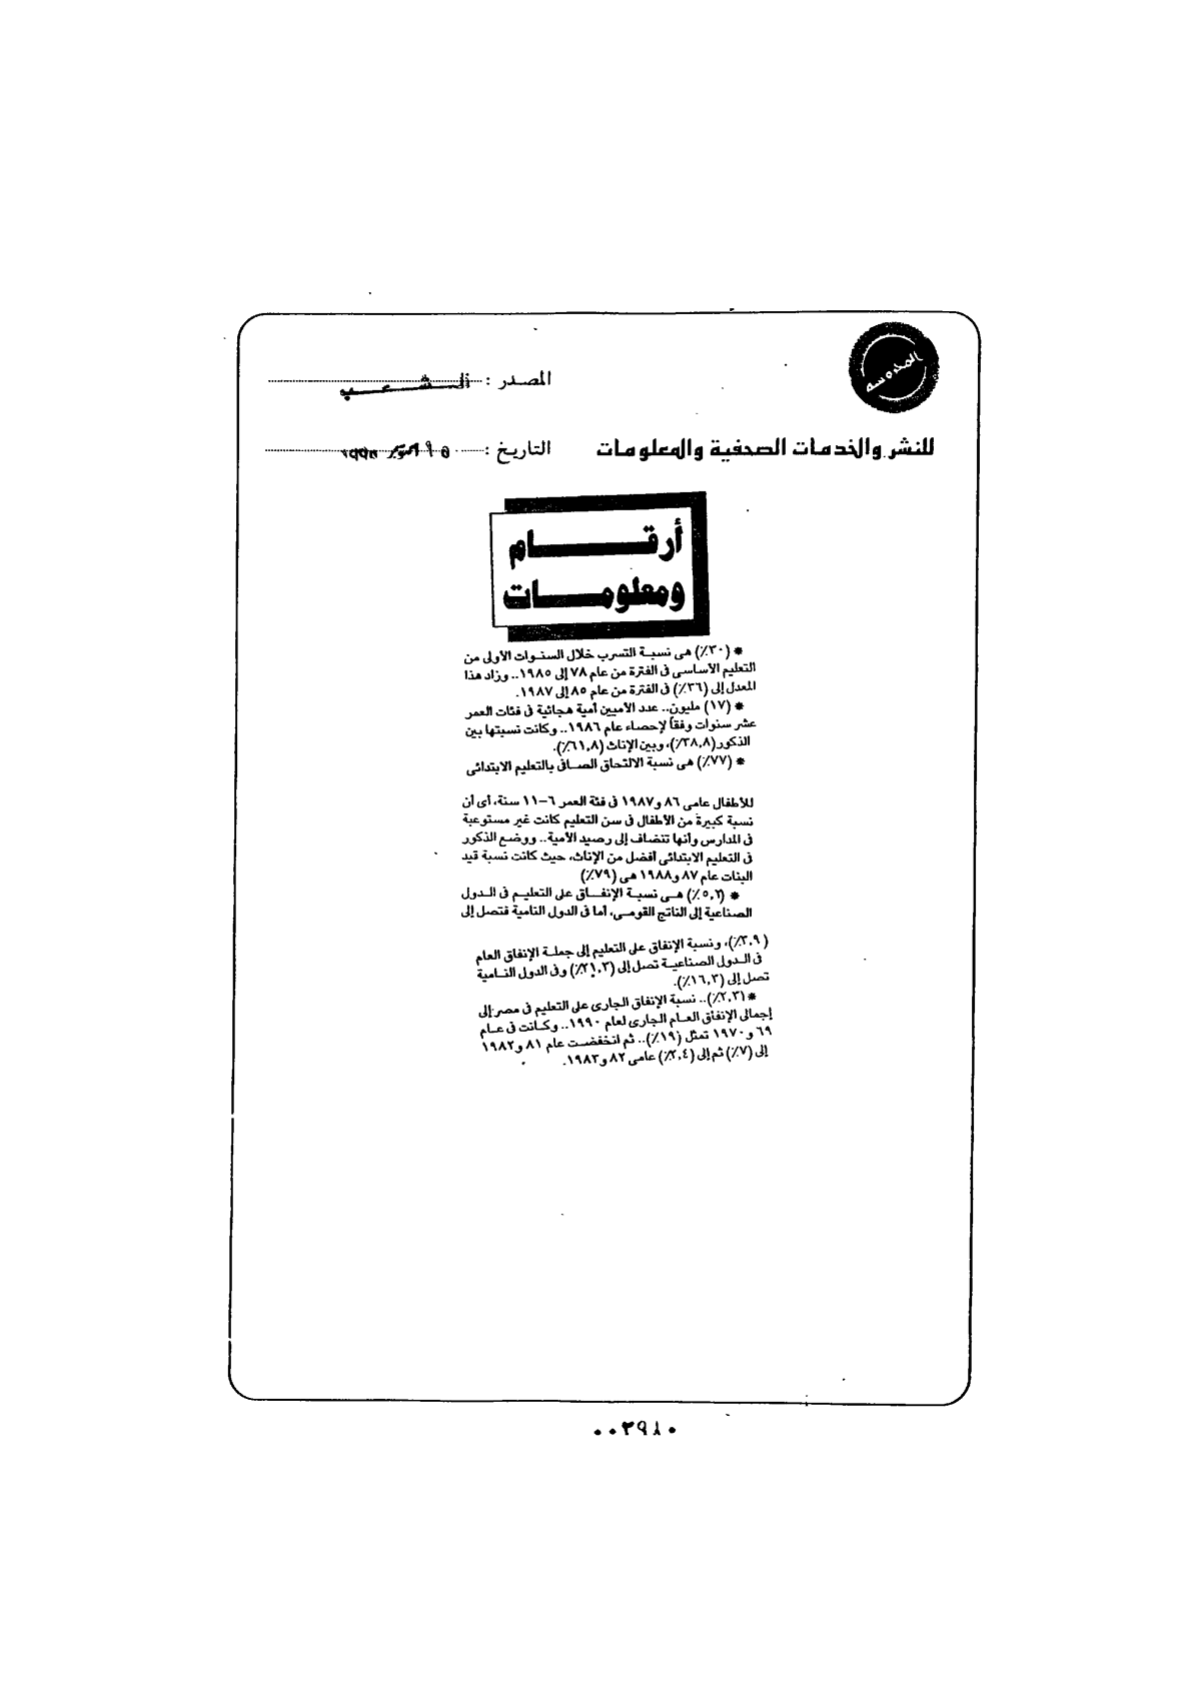 المدرسة
المصدر : الشعب
للنشر والخدمات الصحفية والمعلومات
التاريخ : أكتوبر
أرقام
ومعلومات
* (٣٠٪) هى نسبة التسرب خلال السنوات الأولى من
التعليم الأساسى فى الفترة من عام ٧٨ إلى ١٩٨٥.. وزاد هذا
المعدل إلى (٣٦٪) فى الفترة من عام ٨٥ إلى ١٩٨٧.
* (١٧) مليون.. عدد الأميين أمية هجائية فى فئات العمر
عشر سنوات وفقاً لإحصاء عام ١٩٨٦.. وكانت نسبتها بين
الذكور (٣٨,٨٪)، وبين الإناث (٦١,٨٪).
* (٧٧٪) هى نسبة الالتحاق الصافى بالتعليم الابتدائى
للأطفال عامى ٨٦ و١٩٨٧ فى فئة العمر ٦-١١ سنة، أى أن
نسبة كبيرة من الأطفال فى سن التعليم كانت غير مستوعبة
فى المدارس وأنها تنضاف إلى رصيد الأمية.. ووضع الذكور
فى التعليم الابتدائى أفضل من الإناث، حيث كانت نسبة قيد
البنات عام ٨٧ و١٩٨٨ هى (٧٩٪)
* (٥,٢٪) هى نسبة الإنفاق على التعليم فى الدول
الصناعية إلى الناتج القومى، أما فى الدول النامية فتصل إلى
(٣,٩٪)، ونسبة الإنفاق على التعليم إلى جملة الإنفاق العام
فى الدول الصناعية تصل إلى (٢١,٣٪) وفى الدول النامية
تصل إلى (١٦,٣٪).
* (٢,٣٪).. نسبة الإنفاق الجارى على التعليم فى مصر إلى
إجمالى الإنفاق العام الجارى لعام ١٩٩٠.. وكانت فى عام
٦٩ و١٩٧٠ تمثل (١٩٪).. ثم انخفضت عام ٨١ و١٩٨٢
إلى (٧٪) ثم إلى (٢,٤٪) عامى ٨٢ و١٩٨٣.